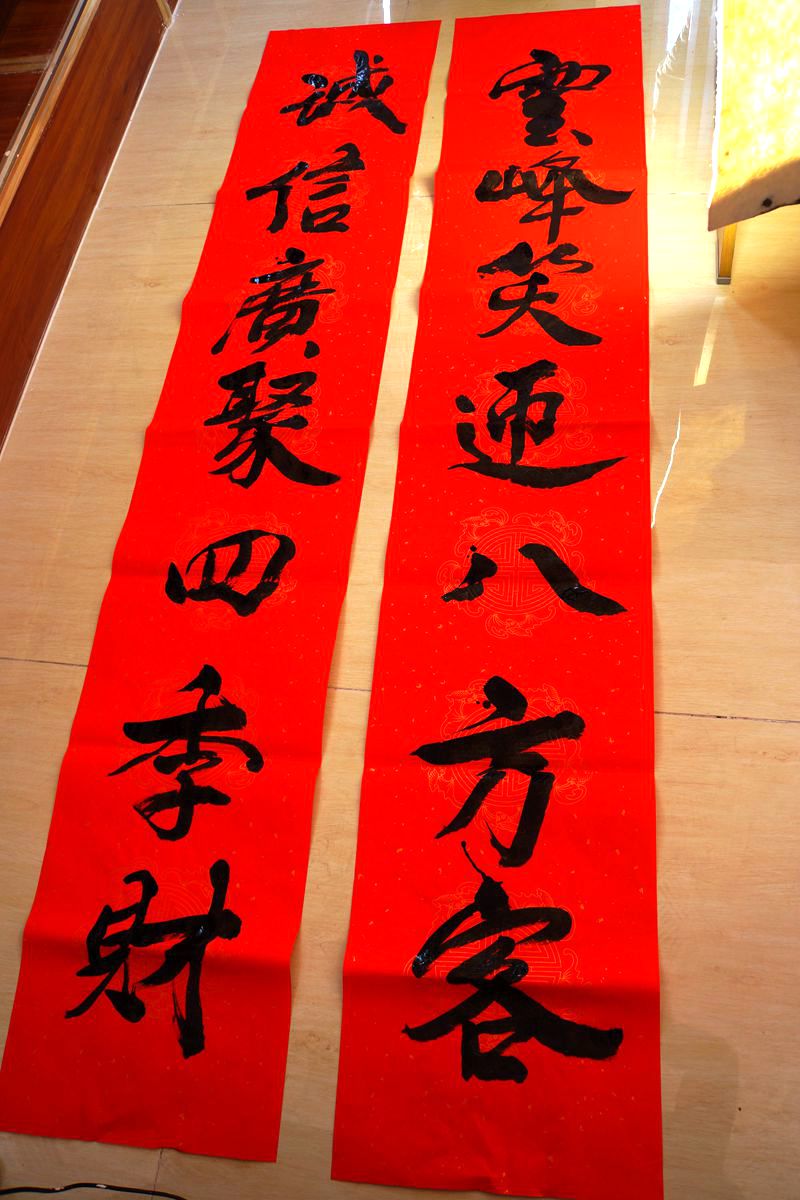 雲峰笑迎八方客
誠信廣聚四季財